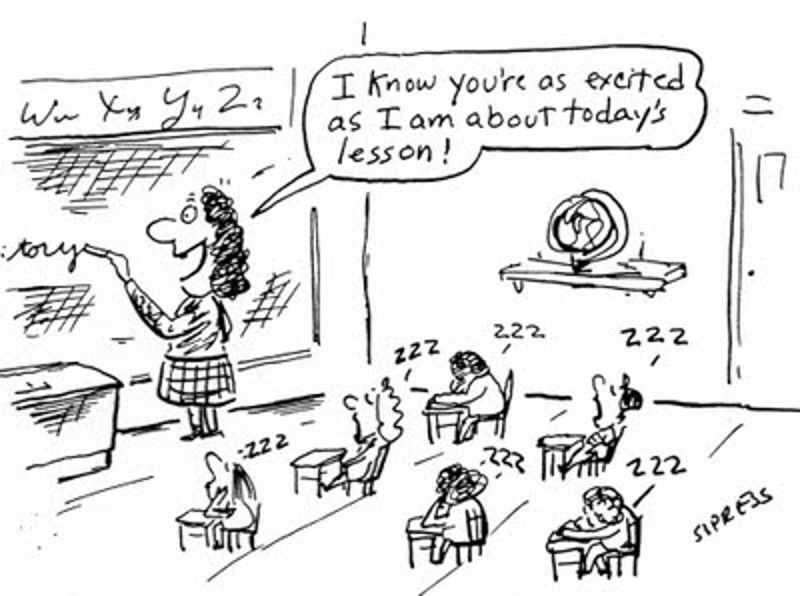 Ww Xx Yy Zz
I know you're as excited
as I am about today's
lesson!
:tory
zzz
zzz
zzz
zzz
zzz
zzz
SIPRESS